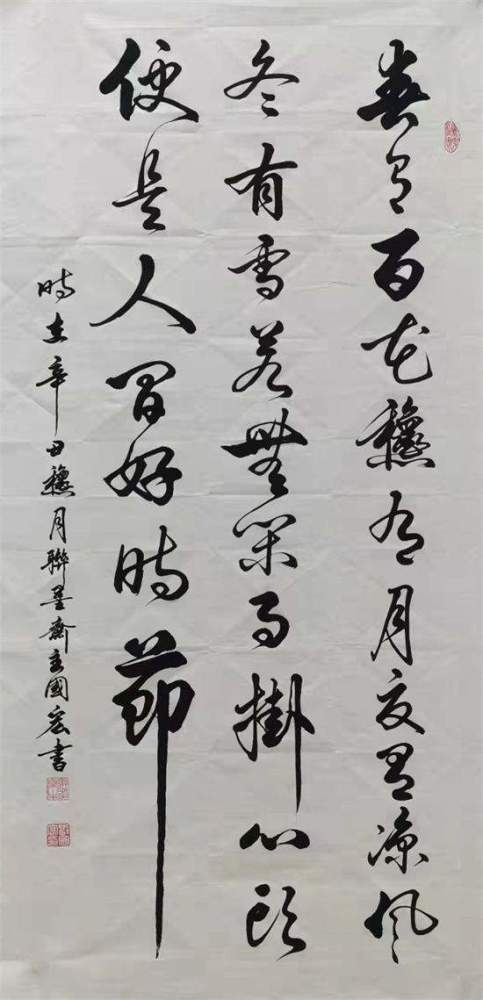 春有百花穐有月夏有涼風
冬有雪若無閑事掛心頭
便是人間好時節
時在辛丑穐月聯墨齋主國宏書